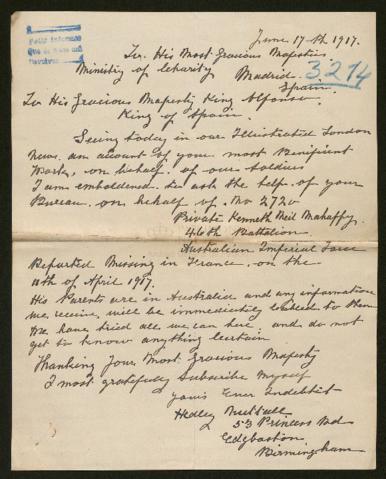 June 17th 1917.
To. His Most Gracious Majesties
Ministry of Charity Madrid.
Spain.
3214
To His Gracious Majesty King Alfonso.
King of Spain.
Seeing today in our Illustrated London
News, an account of your most Benificent
Work, on behalf of our Soldiers
I am emboldened to ask the help of your
Bureau on behalf of. No 2720
Private Kenneth Neil Mahaffy.
46th Battalion
Australian Imperial Force
Reported Missing in France, on the
11th of April 1917.
His Parents are in Australia and any information
we receive, will be immediately cabled to them
We have tried all we can here, and do not
get to know anything certain
Thanking Your Most Gracious Majesty
I most gratefully Subscribe Myself
Yours Ever Indebtit
Hedley
53 Princess Rd
Edgbaston
Birmingham